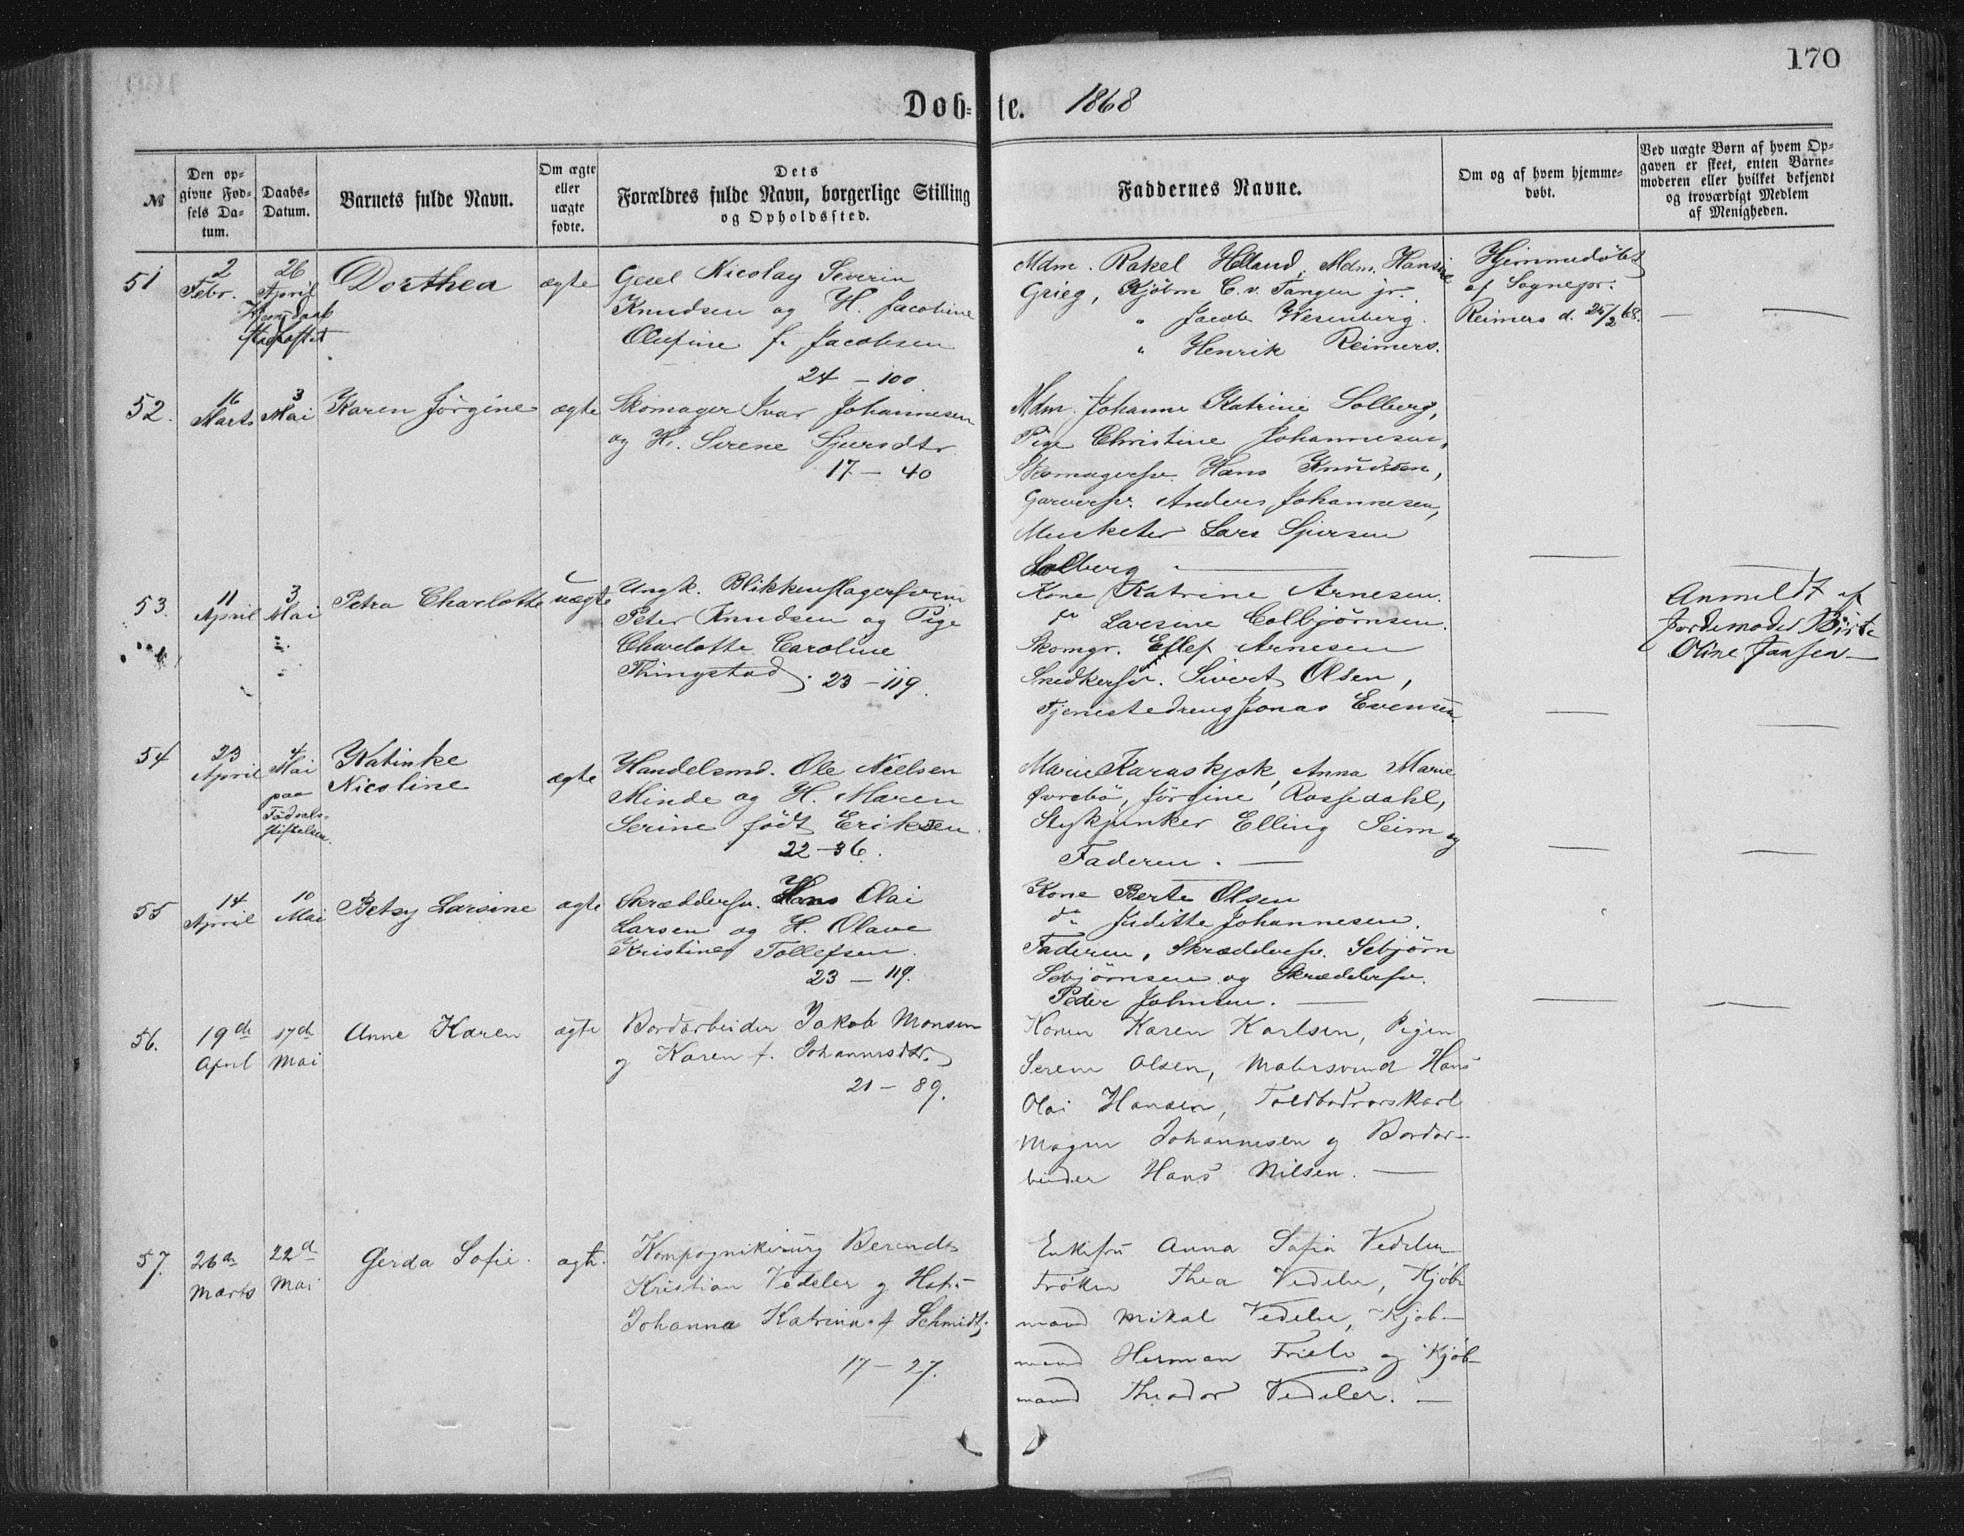 170
Døb-te. 1868
№
Den op-
givne Fød-
sels Da-
tum.
Daabs-
Datum.
Barnets fulde Navn.
Om ægte
eller
uægte
fødte.
Dets
Forældres fulde Navn, borgerlige Stilling
og Opholdssted.
Faddernes Navne.
Om og af hvem hjemme-
døbt.
Ved uægte Børn af hvem Op-
gaven er skeet, enten Barne-
moderen eller hvilket bekjendt
og troværdigt Medlem
af Menigheden.
51
2
Febr.
26
April
Hjemdaab
stadfæstet
Dorthea
ægte
Gesel Nicolay Severin
Knudsen og H. Jacobine
Olufine f. Jacobsen
24 - 100.
Mdm. Rakel Helland, Mdm. Hansine
Grieg, Kjøbm C. v. Tangen jr.
" Jacob Wesenberg.
" Henrik Reimers.
Hjemmedøbt
af Sognepr.
Reimers d. 25/2 68.
52.
16
Marts
3
Mai
Karen Jørgine
ægte
Skomager Ivar Johannesen
og H. Sirene Sjursdtr
17 - 40
Mdm. Johanne Katrine Solberg,
Pige Christine Johannesen,
Skomagersv. Hans Knudsen,
Garversv. Anders Johannesen,
Musketer Lars Sjursen
Solberg
53.
11
April
3
Mai
Petra Charlotte
uægte
Ungk. Blikkenslagersvein
Peter Knudsen og Pige
Charlotte Caroline
Thingstad. 23 - 119.
Kone Katrine Arnesen.
do Larsine Colbjørnsen.
Skomgr. Ellef Arnesen
Snedkersv. Sivert Olsen,
Tjenestedreng Jonas Evensen
Anmeldt af
Jordemoder Birte
Oline Jansen
54
23
April
4
Mai
paa
Fødsels-
stiftelsen.
Katinke
Nicoline
ægte
Handelsmd. Ole Nielsen
Minde og H. Maren
Serine født Eriksen.
22 - 36.
Marie Karaskjok, Anna Marie
Øvrebø, Jørgine Rossedahl,
Stykjunker Elling Seim og
Faderen.
55
14
April
10
Mai
Betsy Larsine
ægte
Skræddersv. Hans Olai
Larsen og H. Olave
Kristine Tollefsen.
23 - 119.
Kone Berte Olsen
do Juditte Johannesen.
Faderen, Skræddersv. Sebjørn
Sebjørnsen og Skræddersv.
Peder Johnsen.
56.
19de
April
17de
Mai
Anne Karen
ægte
Bordarbeider Jakob Monsen
og Karen f. Johannesdtr.
21 - 89.
Konen Karen Karlsen, Pigen
Serene Olsen, Malersvend Hans
Olai Hansen, Toldbodrorskarl
Magne Johannesen og Bordar-
beider Hans Nilsen.
57.
26de
Marts
22de
Mai
Gerda Sofie.
ægte.
Kompagnikirurg Berendt
Kristian Vedeler og Hstr
Johanna Katrina f. Schmidt,
17 - 27.
Enkefru Anna Sofia Vedeler
Frøken Thea Vedeler, Kjøb-
mand Mikal Vedeler, Kjøb-
mand Herman Friele og Kjøb-
mand Theodor Vedeler.